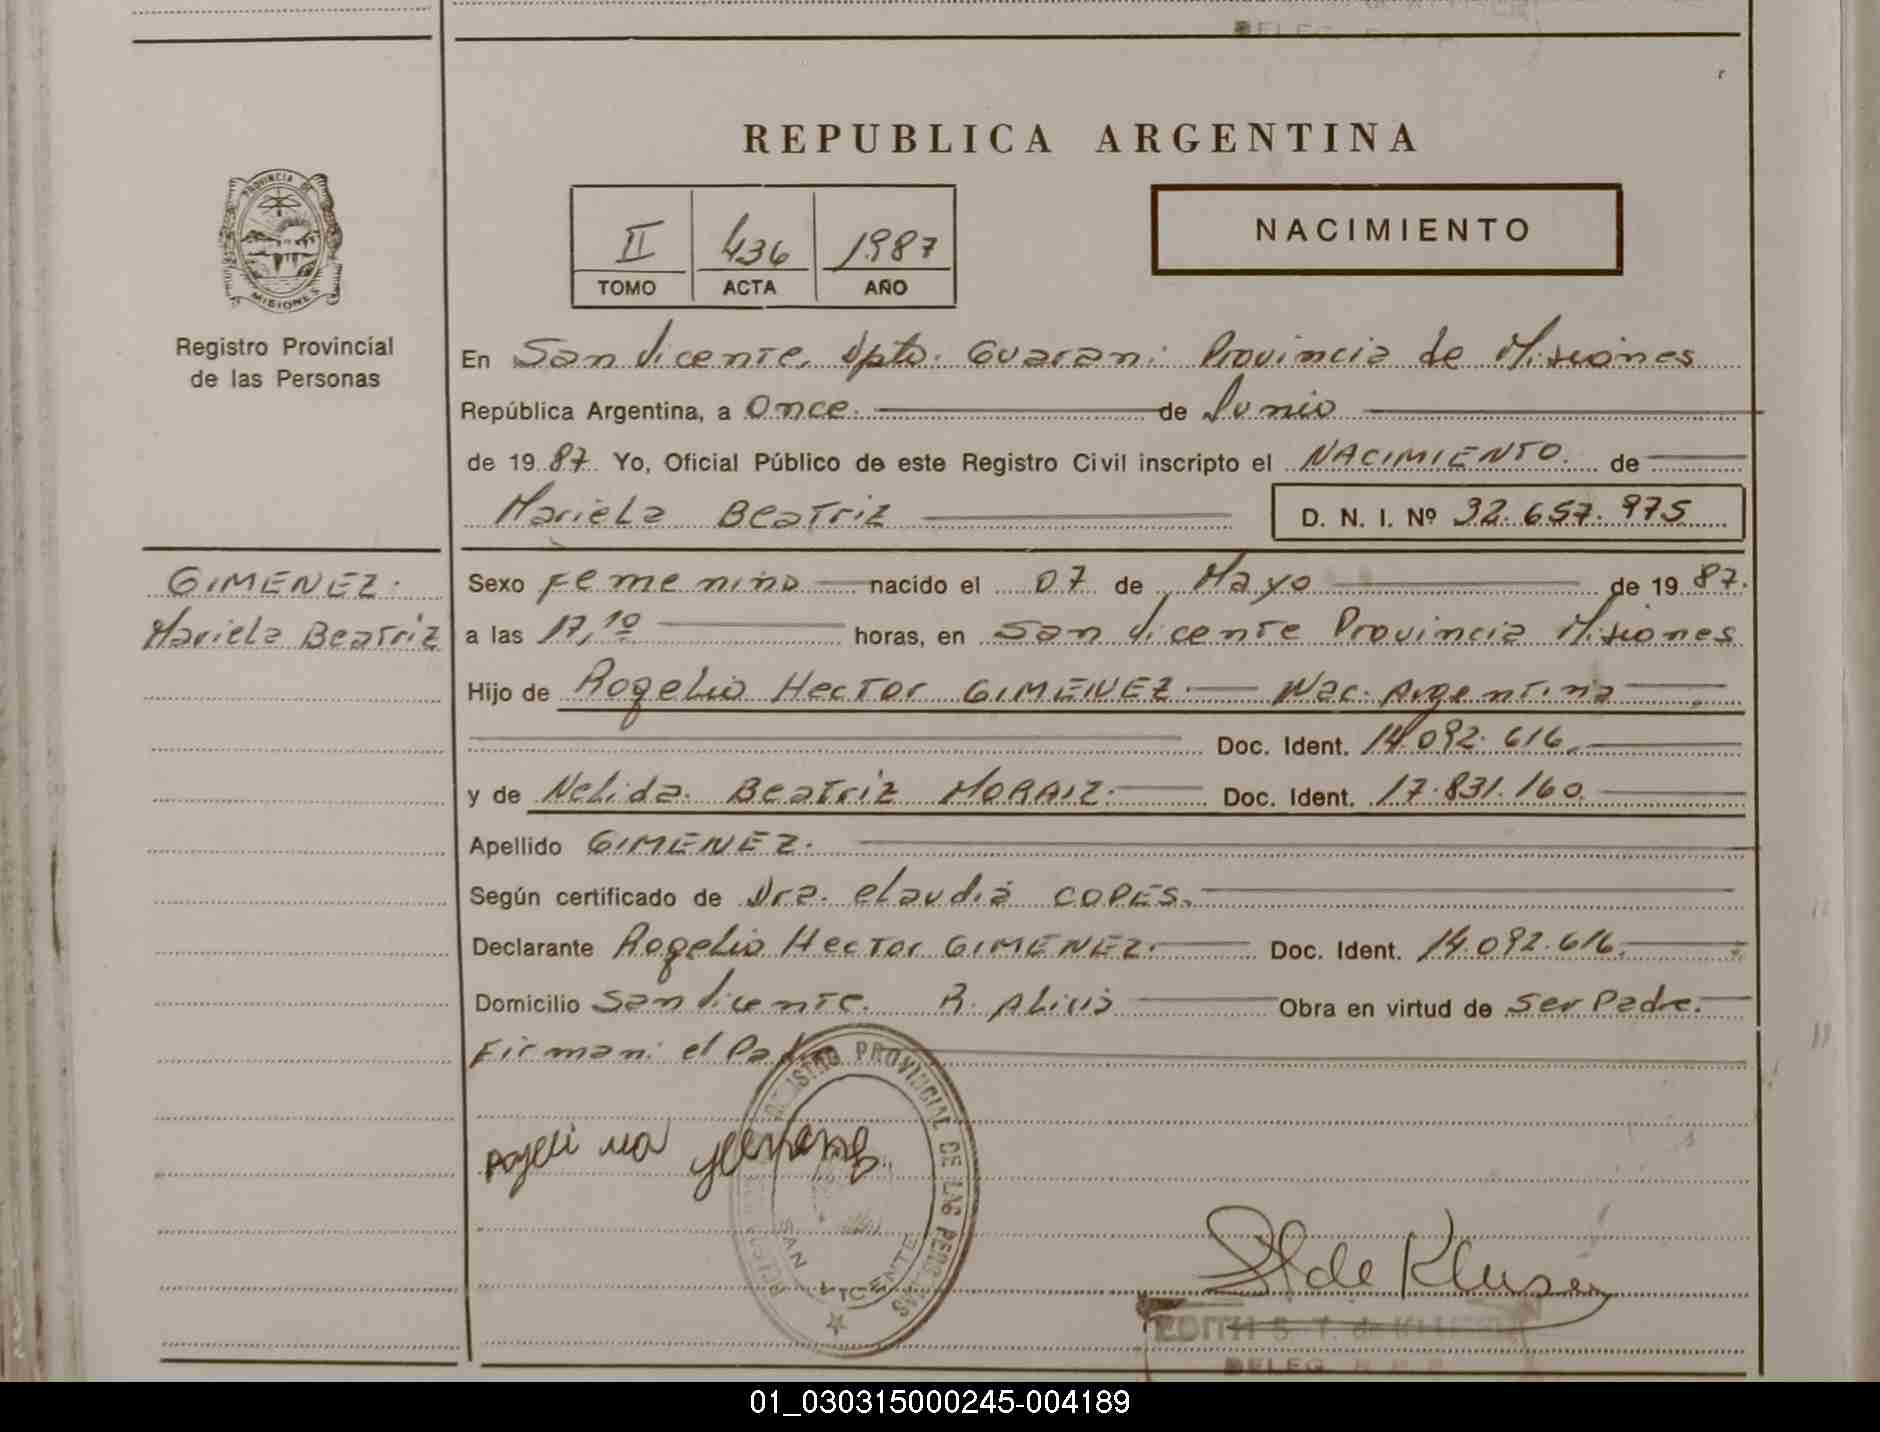 REPUBLICA ARGENTINA
PROVINCIA DE
MISIONES
Registro Provincial
de las Personas
II 436 1987
TOMO ACTA AÑO
NACIMIENTO
En San Vicente, Dpto. Guarani Provincia de Misiones
República Argentina, a Once. de Junio
de 19 87 Yo, Oficial Público de este Registro Civil inscripto el NACIMIENTO. de
Mariela Beatriz D. N. I. Nº 32.657.975
GIMENEZ.
Mariela Beatriz
Sexo Femenino nacido el 07 de Mayo de 19 87.
a las 17,10 horas, en San Vicente Provincia Misiones
Hijo de Rogelio Hector GIMENEZ. Nac. Argentina
Doc. Ident. 14.092.616.
y de Nelida Beatriz MORAIZ. Doc. Ident. 17.831.160.
Apellido GIMENEZ.
Según certificado de Dra. Claudia COPES.
Declarante Rogelio Hector GIMENEZ. Doc. Ident. 14.092.616.
Domicilio San Vicente. Obra en virtud de Ser Padre.
Firman: el Padre
REGISTRO PROVINCIAL DE LAS PERSONAS
SAN VICENTE
de Kluse
EDITH S. T. de
DELEG. R. P. P.
01_030315000245-004189